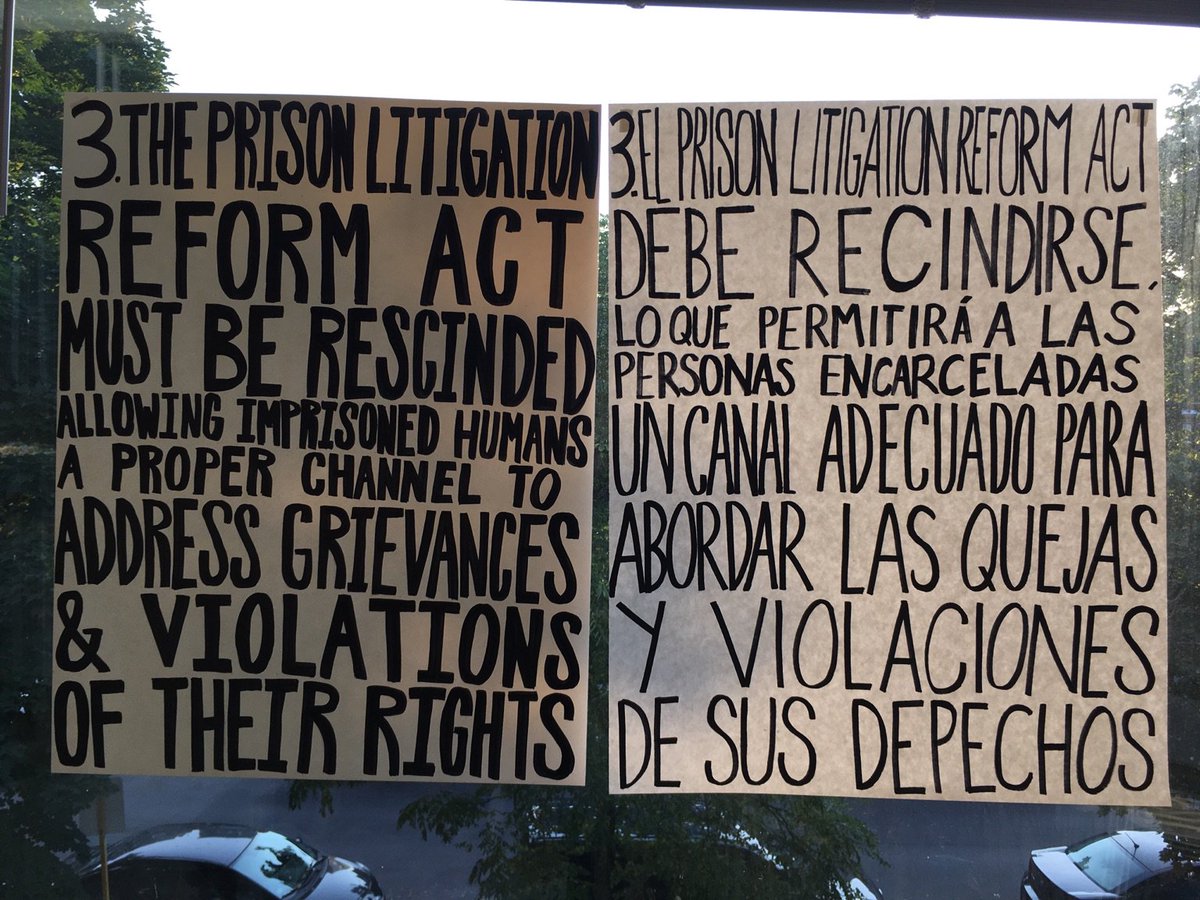 3. THE PRISON LITIGATION
REFORM ACT
MUST BE RESCINDED
ALLOWING IMPRISONED HUMANS
A PROPER CHANNEL TO
ADDRESS GRIEVANCES
& VIOLATIONS
OF THEIR RIGHTS
3. EL PRISON LITIGATION REFORM ACT
DEBE RECINDIRSE,
LO QUE PERMITIRÁ A LAS
PERSONAS ENCARCELADAS
UN CANAL ADECUADO PARA
ABORDAR LAS QUEJAS
Y VIOLACIONES
DE SUS DEPECHOS